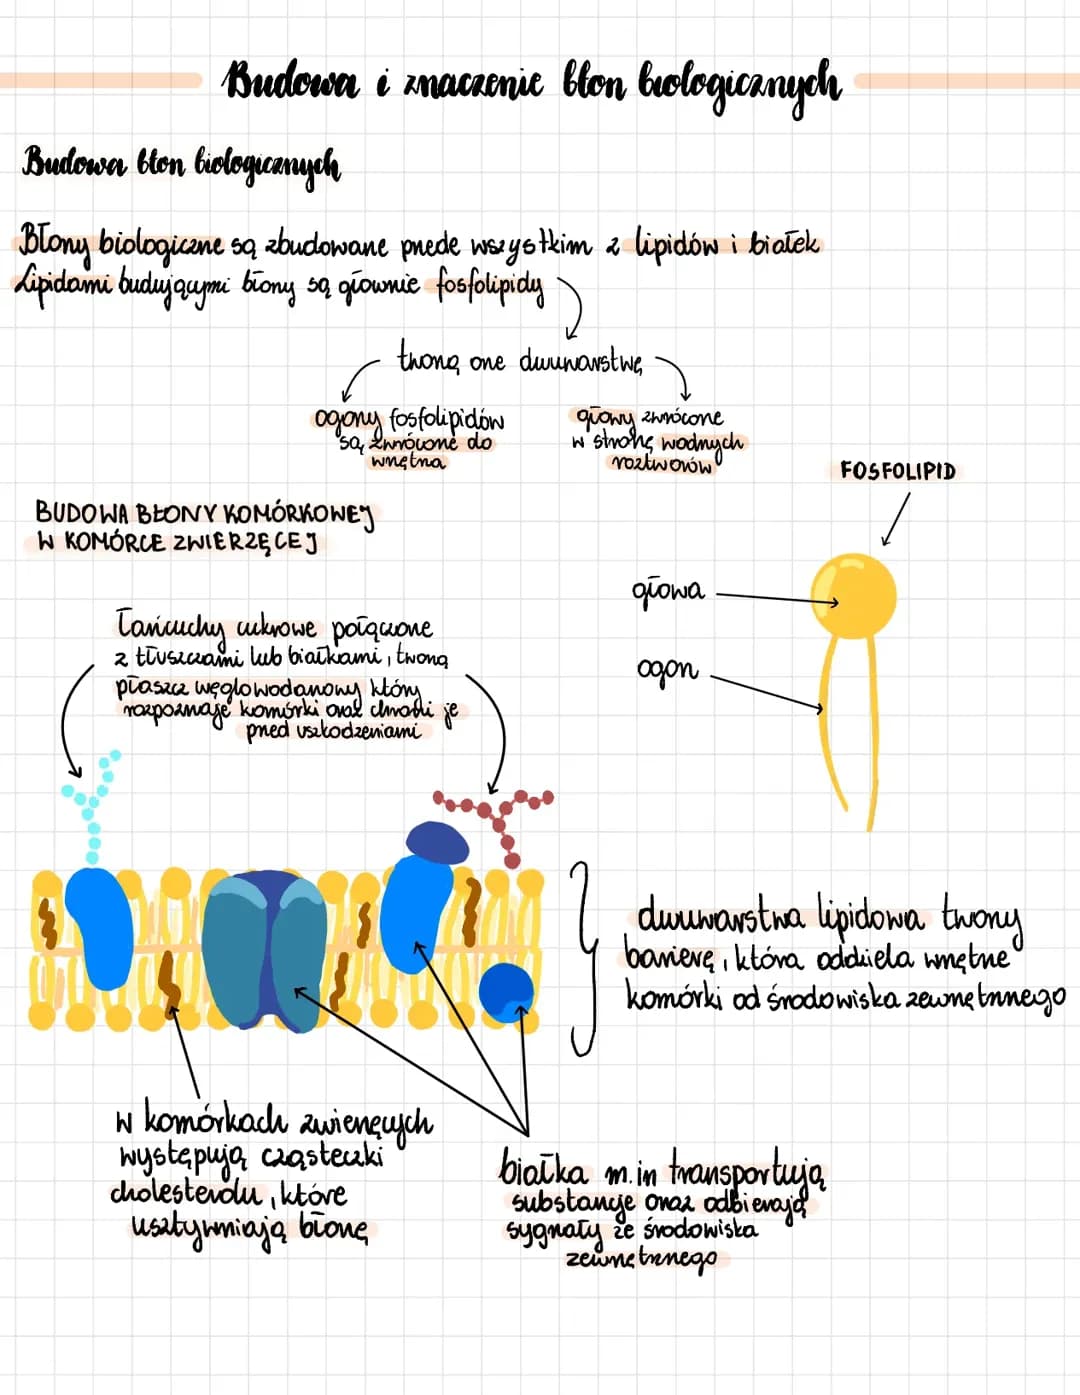 Budowa i znaczenie błon biologicznych
Budowa błon biologicznych
Błony biologiczne są zbudowane przede wszystkim z lipidów i białek
Lipidami budującymi błony są głównie fosfolipidy
tworzą one dwuwarstwę
ogony fosfolipidów
są zwrócone do
wnętrza
głowy zwrócone
w stronę wodnych
roztworów
FOSFOLIPID
BUDOWA BŁONY KOMÓRKOWEJ
W KOMÓRCE ZWIERZĘCEJ
głowa
ogon
Łańcuchy cukrowe połączone
z tłuszczami lub białkami, tworzą
płaszcz węglowodanowy który
rozpoznaje komórki oraz chroni je
przed uszkodzeniami
dwuwarstwa lipidowa tworzy
barierę, która oddziela wnętrze
komórki od środowiska zewnętrznego
W komórkach zwierzęcych
występują cząsteczki
cholesterolu, które
usztywniają błonę
białka m.in transportują
substancje oraz odbierają
sygnały ze środowiska
zewnętrznego